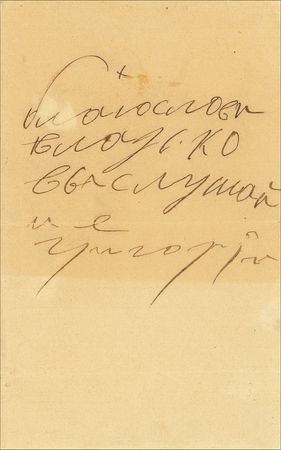 +
благослови
владыко
выслушай
ие
григорiй